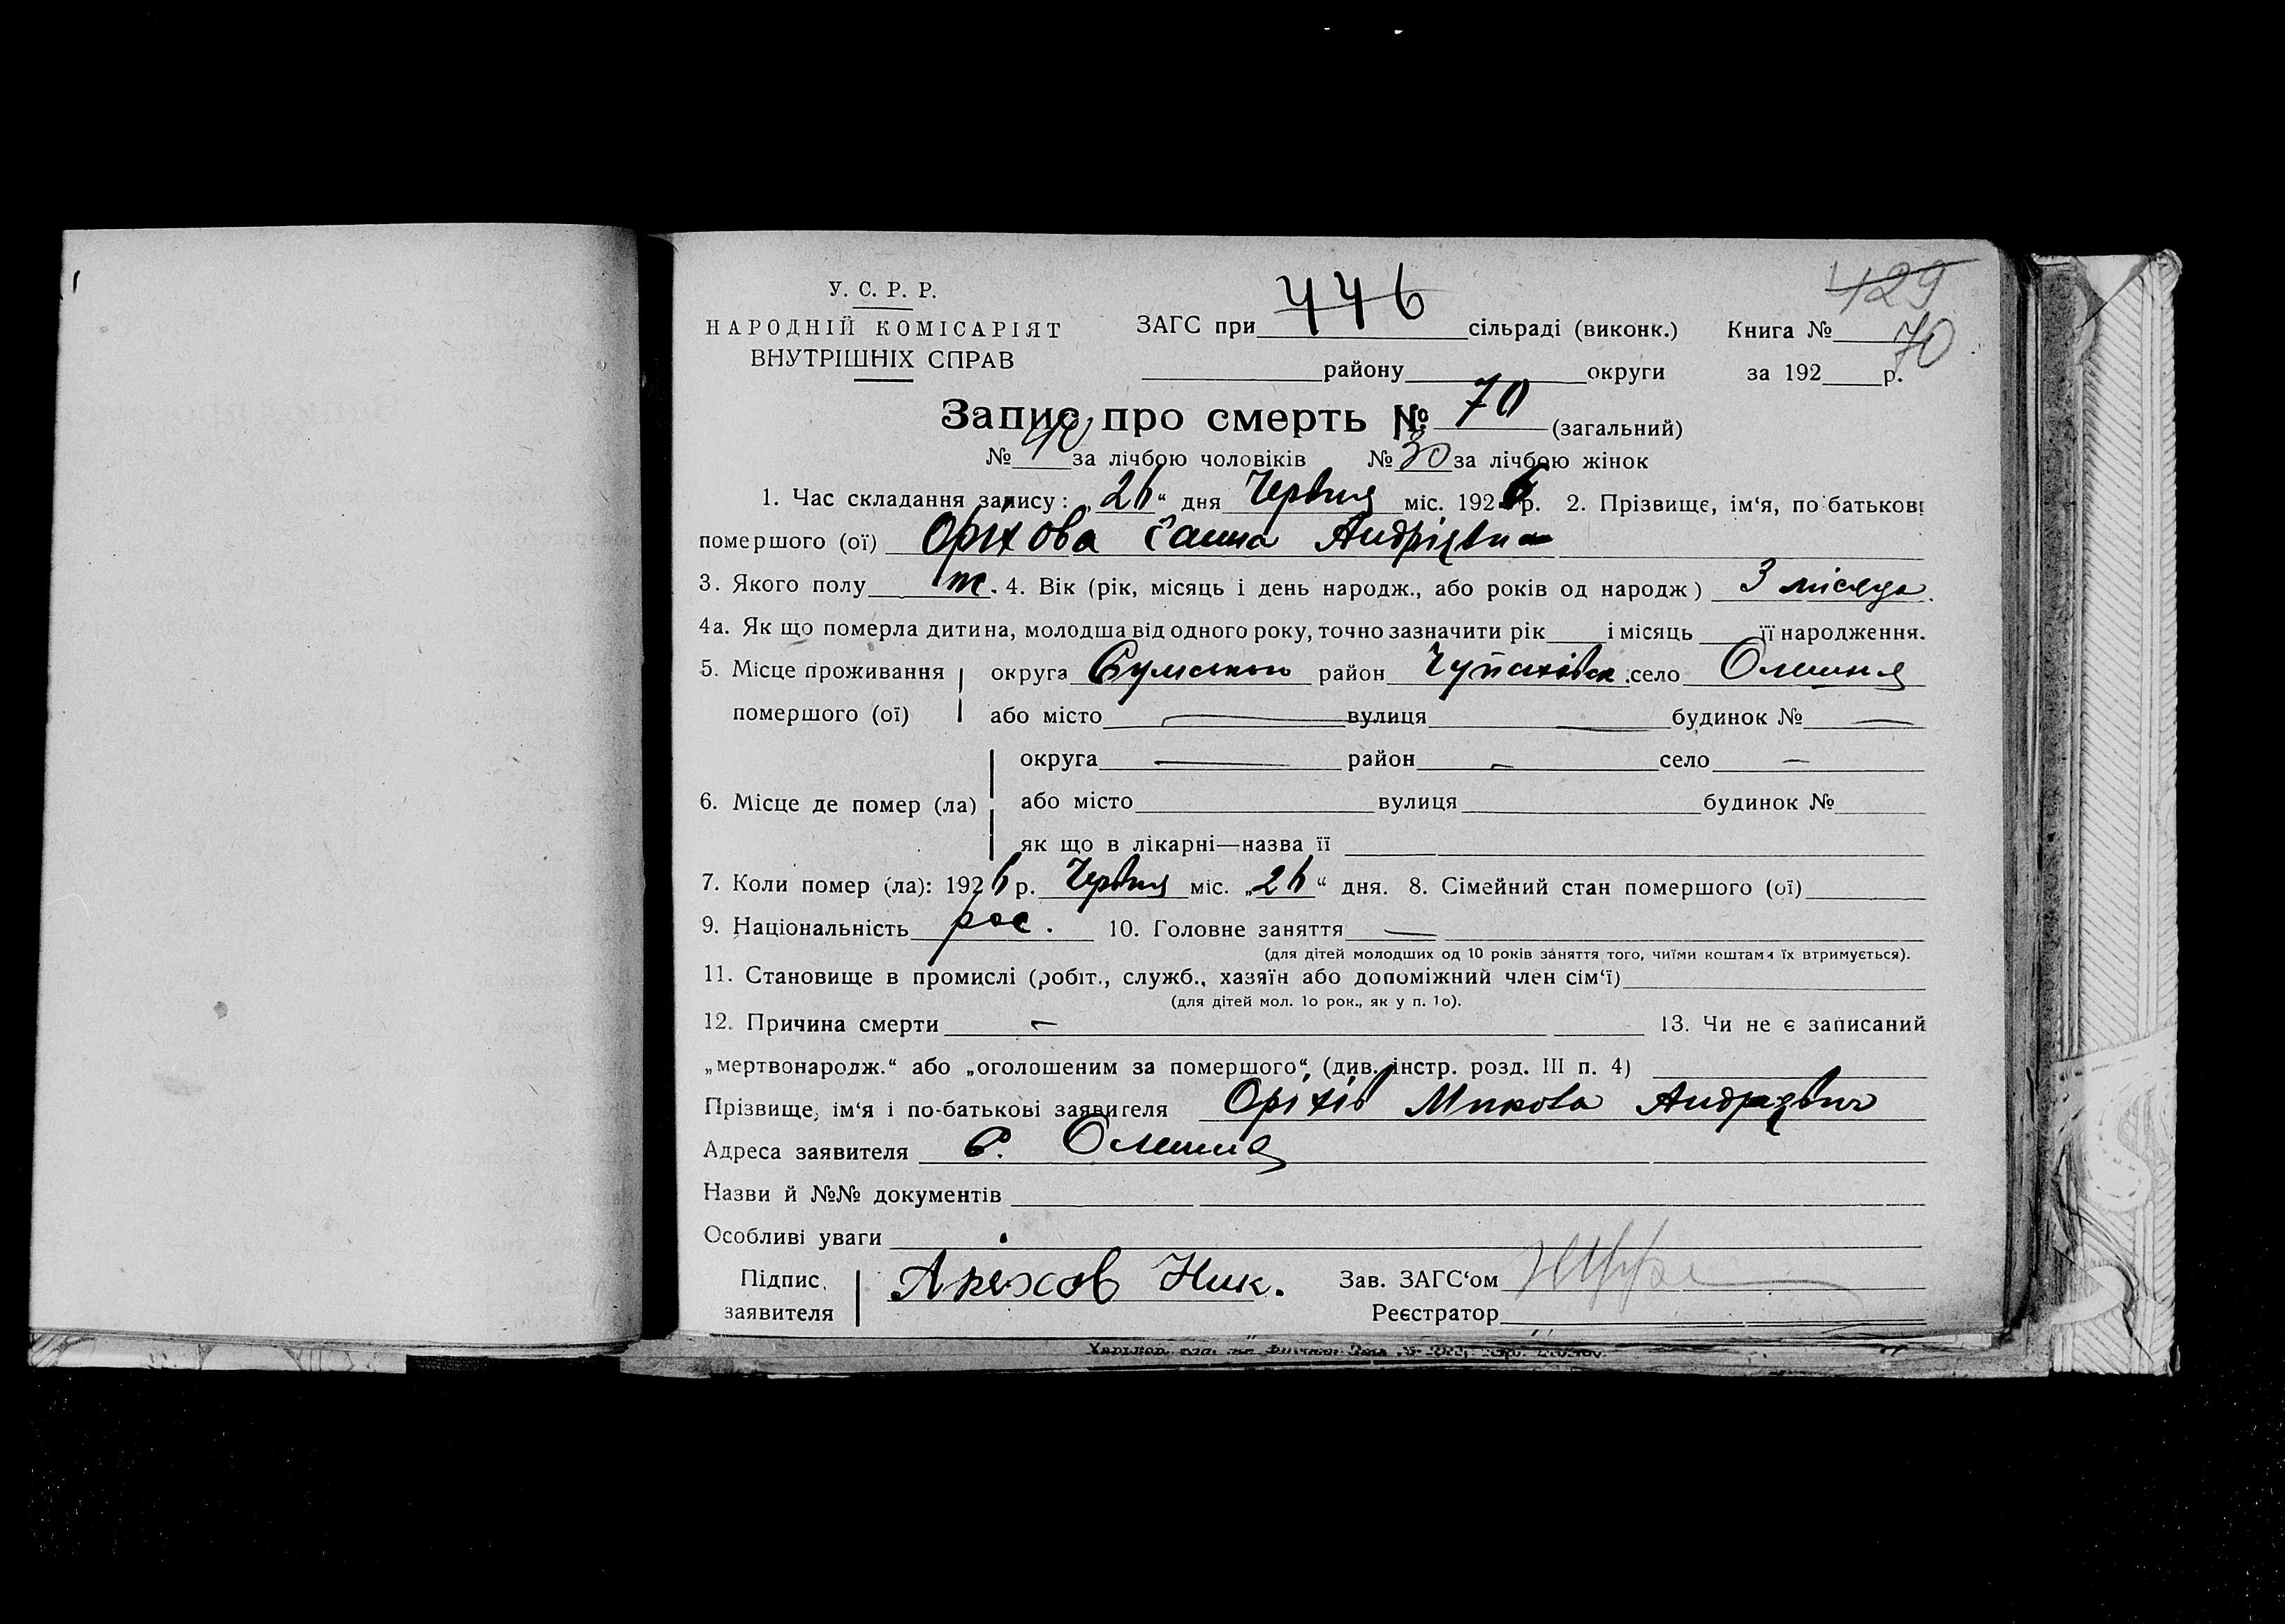 429
У. С. Р. Р.
НАРОДНІЙ КОМІСАРІЯТ
ВНУТРІШНІХ СПРАВ
ЗАГС при 446 сільраді (виконк.) Книга № 70
району округи за 192 р.
Запис про смерть № 70 (загальний)
№ 40 за лічбою чоловіків № 30 за лічбою жінок
1. Час складання запису: „26“ дня Червня міс. 1926 р. 2. Прізвище, ім‘я, по батькові
помершого (ої) Оріхова Ганна Андріївна
3. Якого полу ж. 4. Вік (рік, місяць і день народж., або років од народж) 3 місяца.
4а. Як що померла дитина, молодша від одного року, точно зазначити рік і місяць її народження.
5. Місце проживання округа Сумською район Чупахівск. село Олешня
помершого (ої) або місто — вулиця — будинок № —
округа — район — село —
6. Місце де помер (ла) або місто вулиця будинок №
як що в лікарні—назва її
7. Коли помер (ла): 1926 р. Червня міс. „26“ дня. 8. Сімейний стан помершого (ої)
9. Національність рос. 10. Головне заняття —
(для дітей молодших од 10 років заняття того, чиїми коштами їх втримується).
11. Становище в промислі (робіт., служб., хазяїн або допоміжний член сім‘ї)
(для дітей мол. 1о рок., як у п. 1о).
12. Причина смерти — 13. Чи не є записаний
„мертвонародж.“ або „оголошеним за помершого“, (див. інстр. розд. III п. 4)
Прізвище, ім‘я і по-батькові заявителя Оріхів Микола Андріевич
Адреса заявителя С. Олешня
Назви й №№ документів
Особливі уваги
Підпис заявителя Арехов Ник. Зав. ЗАГС‘ом
Реєстратор